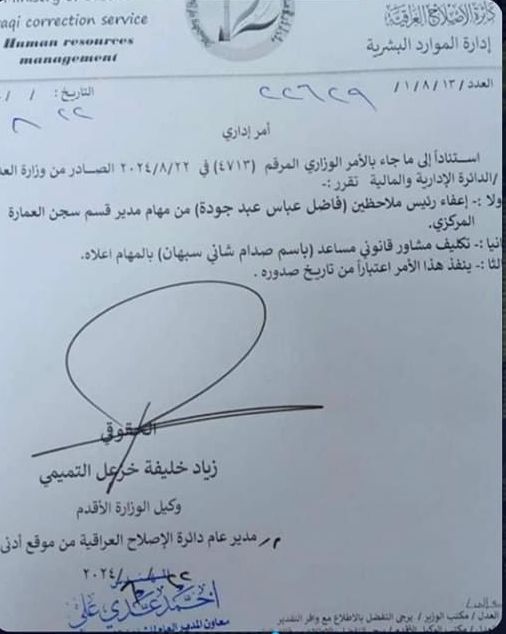 دائرة الإصلاح العراقية
aqi correction service
إدارة الموارد البشرية
Human resources
management
العدد/ ١/٨/١٣/ ٢٢٦٢٩
التاريخ: / /
٢٢ ٨
أمر إداري
استناداً إلى ما جاء بالأمر الوزاري المرقم (٤٧١٣) في ٢٠٢٤/٨/٢٢ الصادر من وزارة العد
/الدائرة الإدارية والمالية تقرر :-
ولا :- إعفاء رئيس ملاحظين (فاضل عباس عبد جودة) من مهام مدير قسم سجن العمارة
المركزي.
انيا :- تكليف مشاور قانوني مساعد (باسم صدام شاني سبهان) بالمهام اعلاه.
الثا :- ينفذ هذا الأمر اعتباراً من تاريخ صدوره .
الحقوقي
زياد خليفة خزعل التميمي
وكيل الوزارة الأقدم
م/ مدير عام دائرة الإصلاح العراقية من موقع أدنى
٢٠٢٤/ /
المهندس
احمد عدي علي
معاون المدير العام
العدل / مكتب الوزير / يرجى التفضل بالاطلاع مع وافر التقدير